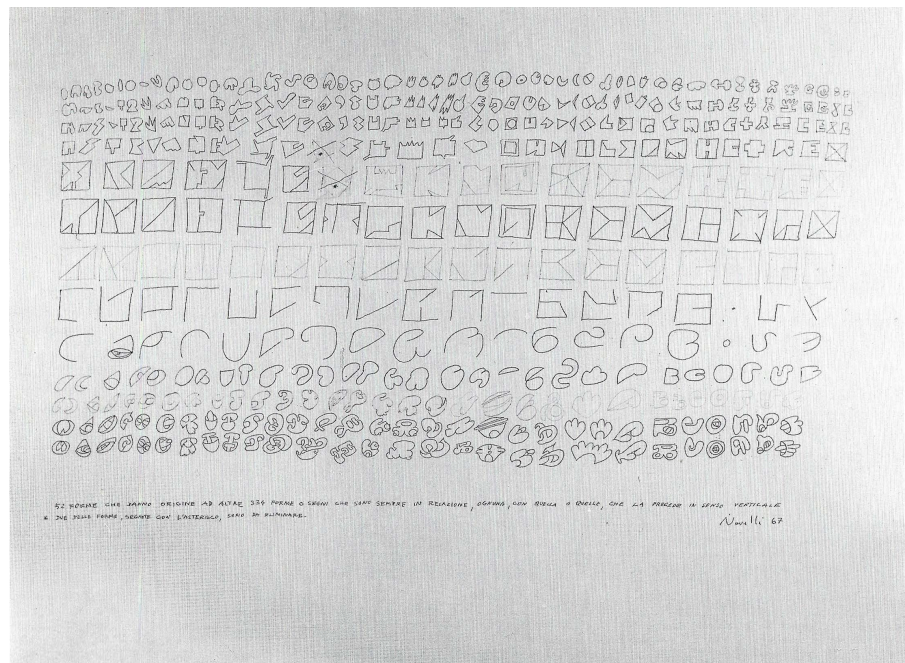 52 FORME CHE DANNO ORIGINE AD ALTRE 334 FORME O SEGNI CHE SONO SEMPRE IN RELAZIONE, OGNUNA, CON QUELLA O QUELLE, CHE LA PRECEDE IN SENSO VERTICALE
* DUE DELLE FORME, SEGNATE CON L'ASTERISCO, SONO DA ELIMINARE.
Novelli 67